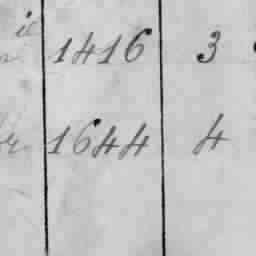 1416 3
1644 4